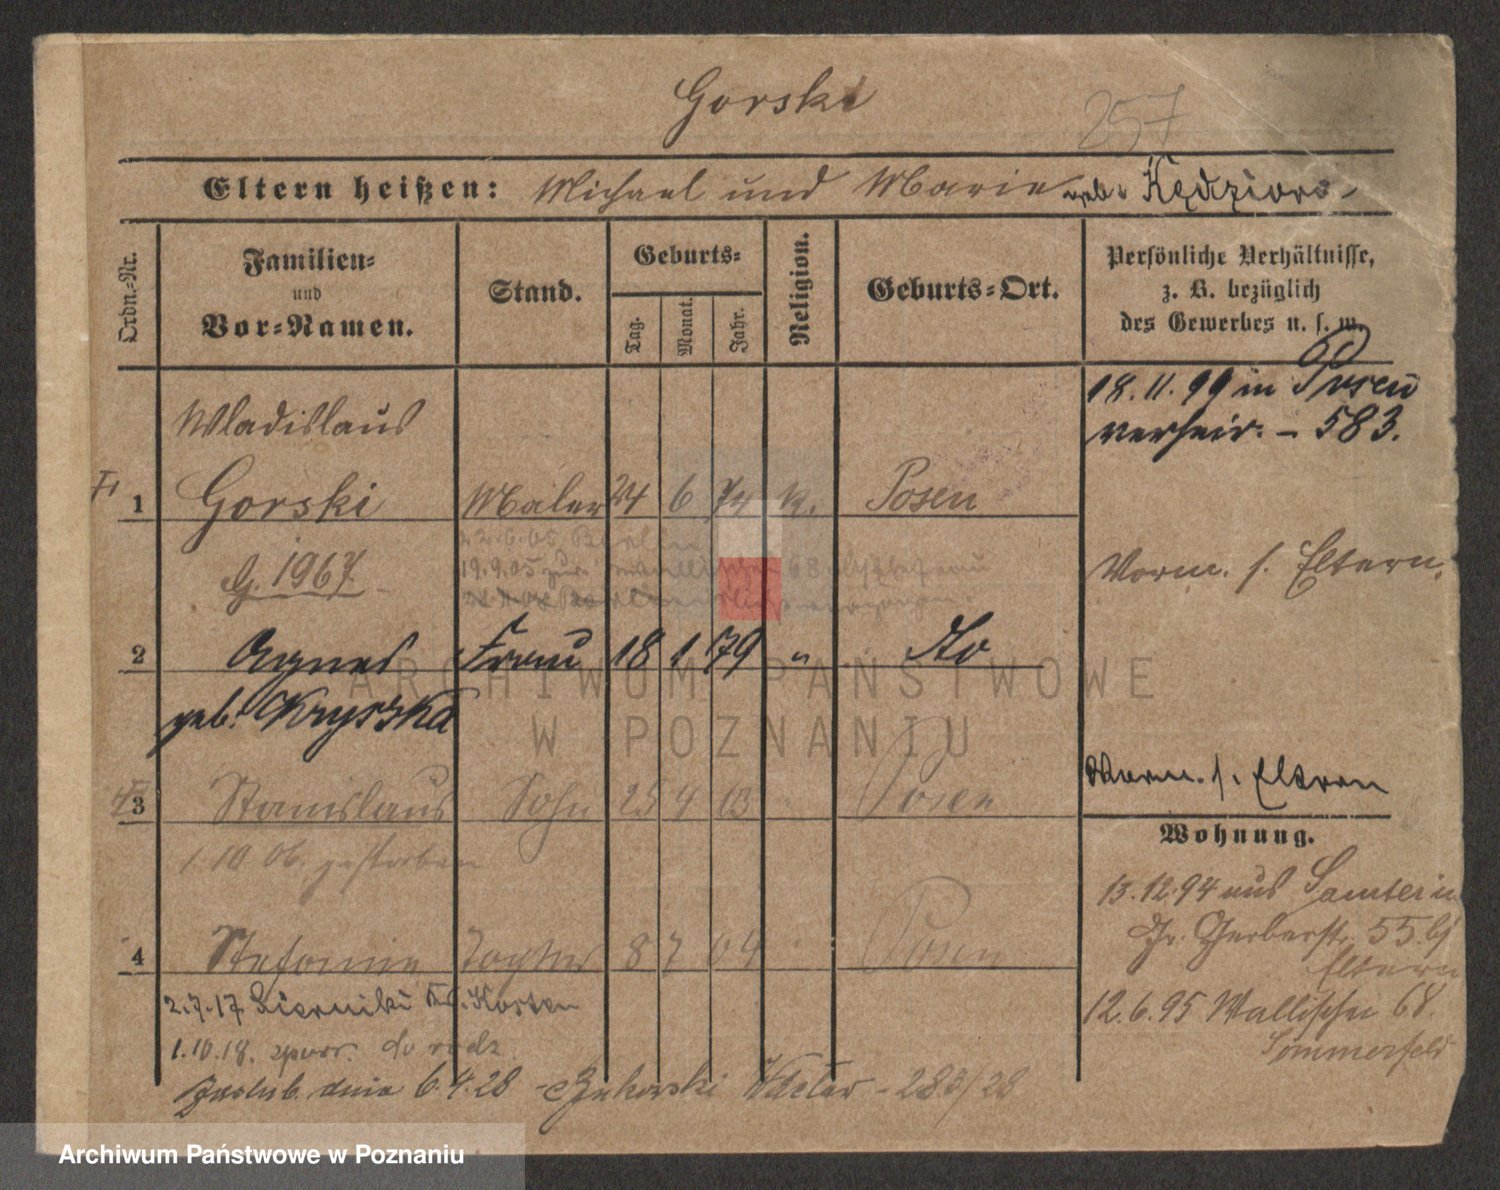 Gorski
257
Eltern heißen: Michael und Marie geb. Kędziora
Ordn.-Nr.
Familien-
und
Vor-Namen.
Stand.
Geburts-
Tag.
Monat.
Jahr.
Religion.
Geburts-Ort.
Persönliche Verhältnisse,
z. B. bezüglich
des Gewerbes u. s. w.
18.11.99 in Posen
verheir. - 583.
Wladislaus
1 Gorski Maler 24 6 74 k. Posen
22.6.05 Berlin
19.9.05 zur. Wallischei 68
G. 1967.
Vorm. s. Eltern.
2 Agnes Frau 18 1 79 " Do
geb. Kryszka
ARCHIWUM PAŃSTWOWE
W POZNANIU
Vorm. s. Eltern
3 Stanislaus Sohn 25 4 03 " Posen
Wohnung.
1.10.06. gestorben
13.12.94 aus Samter in
Gr. Gerberstr. 55.
Eltern
4 Stefanie Tochter 8 7 04 " Posen
2.7.17 Kosten
12.6.95 Wallischei 68.
Sommerfeld
1.10.18. do rodz.
dnia 6.4.28 - 283/28
Archiwum Państwowe w Poznaniu